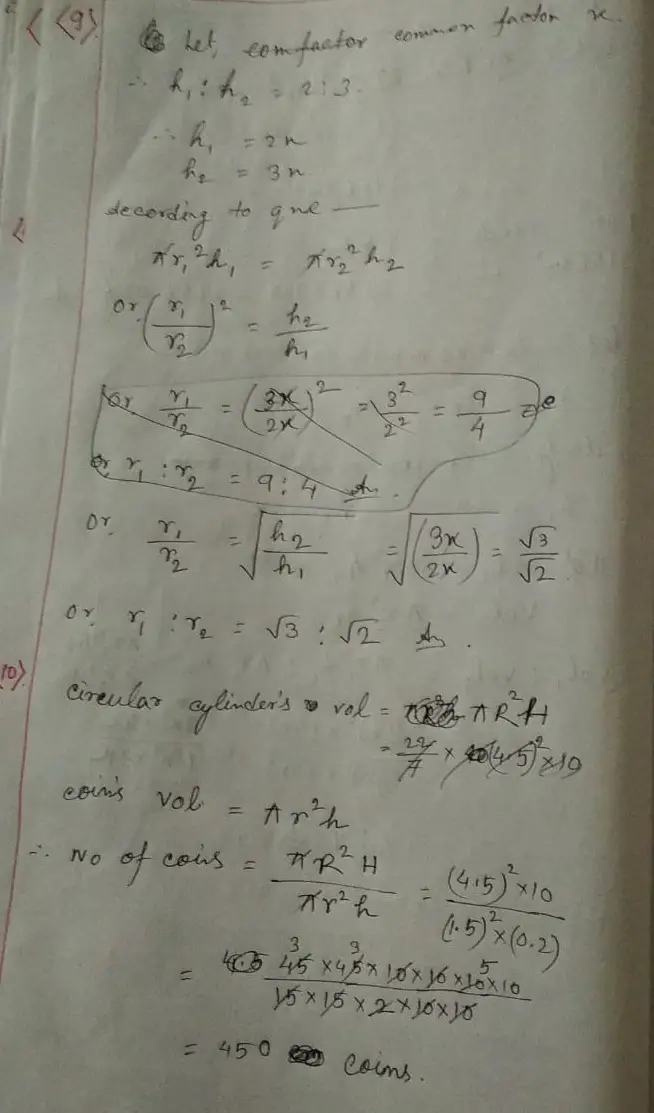 (9) Let, comfactor common factor x.
∴ h₁ : h₂ = 2 : 3.
∴ h₁ = 2x
h₂ = 3x
According to que —
πr₁²h₁ = πr₂²h₂
or (r₁/r₂)² = h₂/h₁
or r₁/r₂ = (3x/2x)² = 3²/2² = 9/4
or r₁ : r₂ = 9 : 4 Ans.
or. r₁/r₂ = √(h₂/h₁) = √(3x/2x) = √3/√2
or. r₁ : r₂ = √3 : √2 Ans.
10). circular cylinder's vol = πR²H
= 22/7 × (4.5)² × 10
coin's vol = πr²h
∴ No of coins = πR²H/πr²h = (4.5)²×10/(1.5)²×(0.2)
= 45×45×10×10×10×10/15×15×2×10×10
= 450 coins.